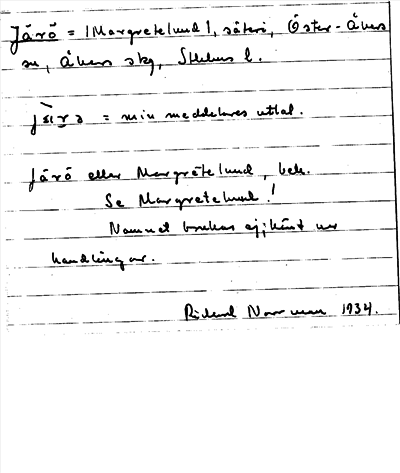 Järö = |Margretelund|, säteri, Öster-Åkers
sn, Åkers skg, Sthlms l.
= min meddelares uttal.
Järö eller Margretelund, bek.
Se Margretelund!
Namnet brukas ej, känt ur
handlingar.
Rickard Norrman 1934.